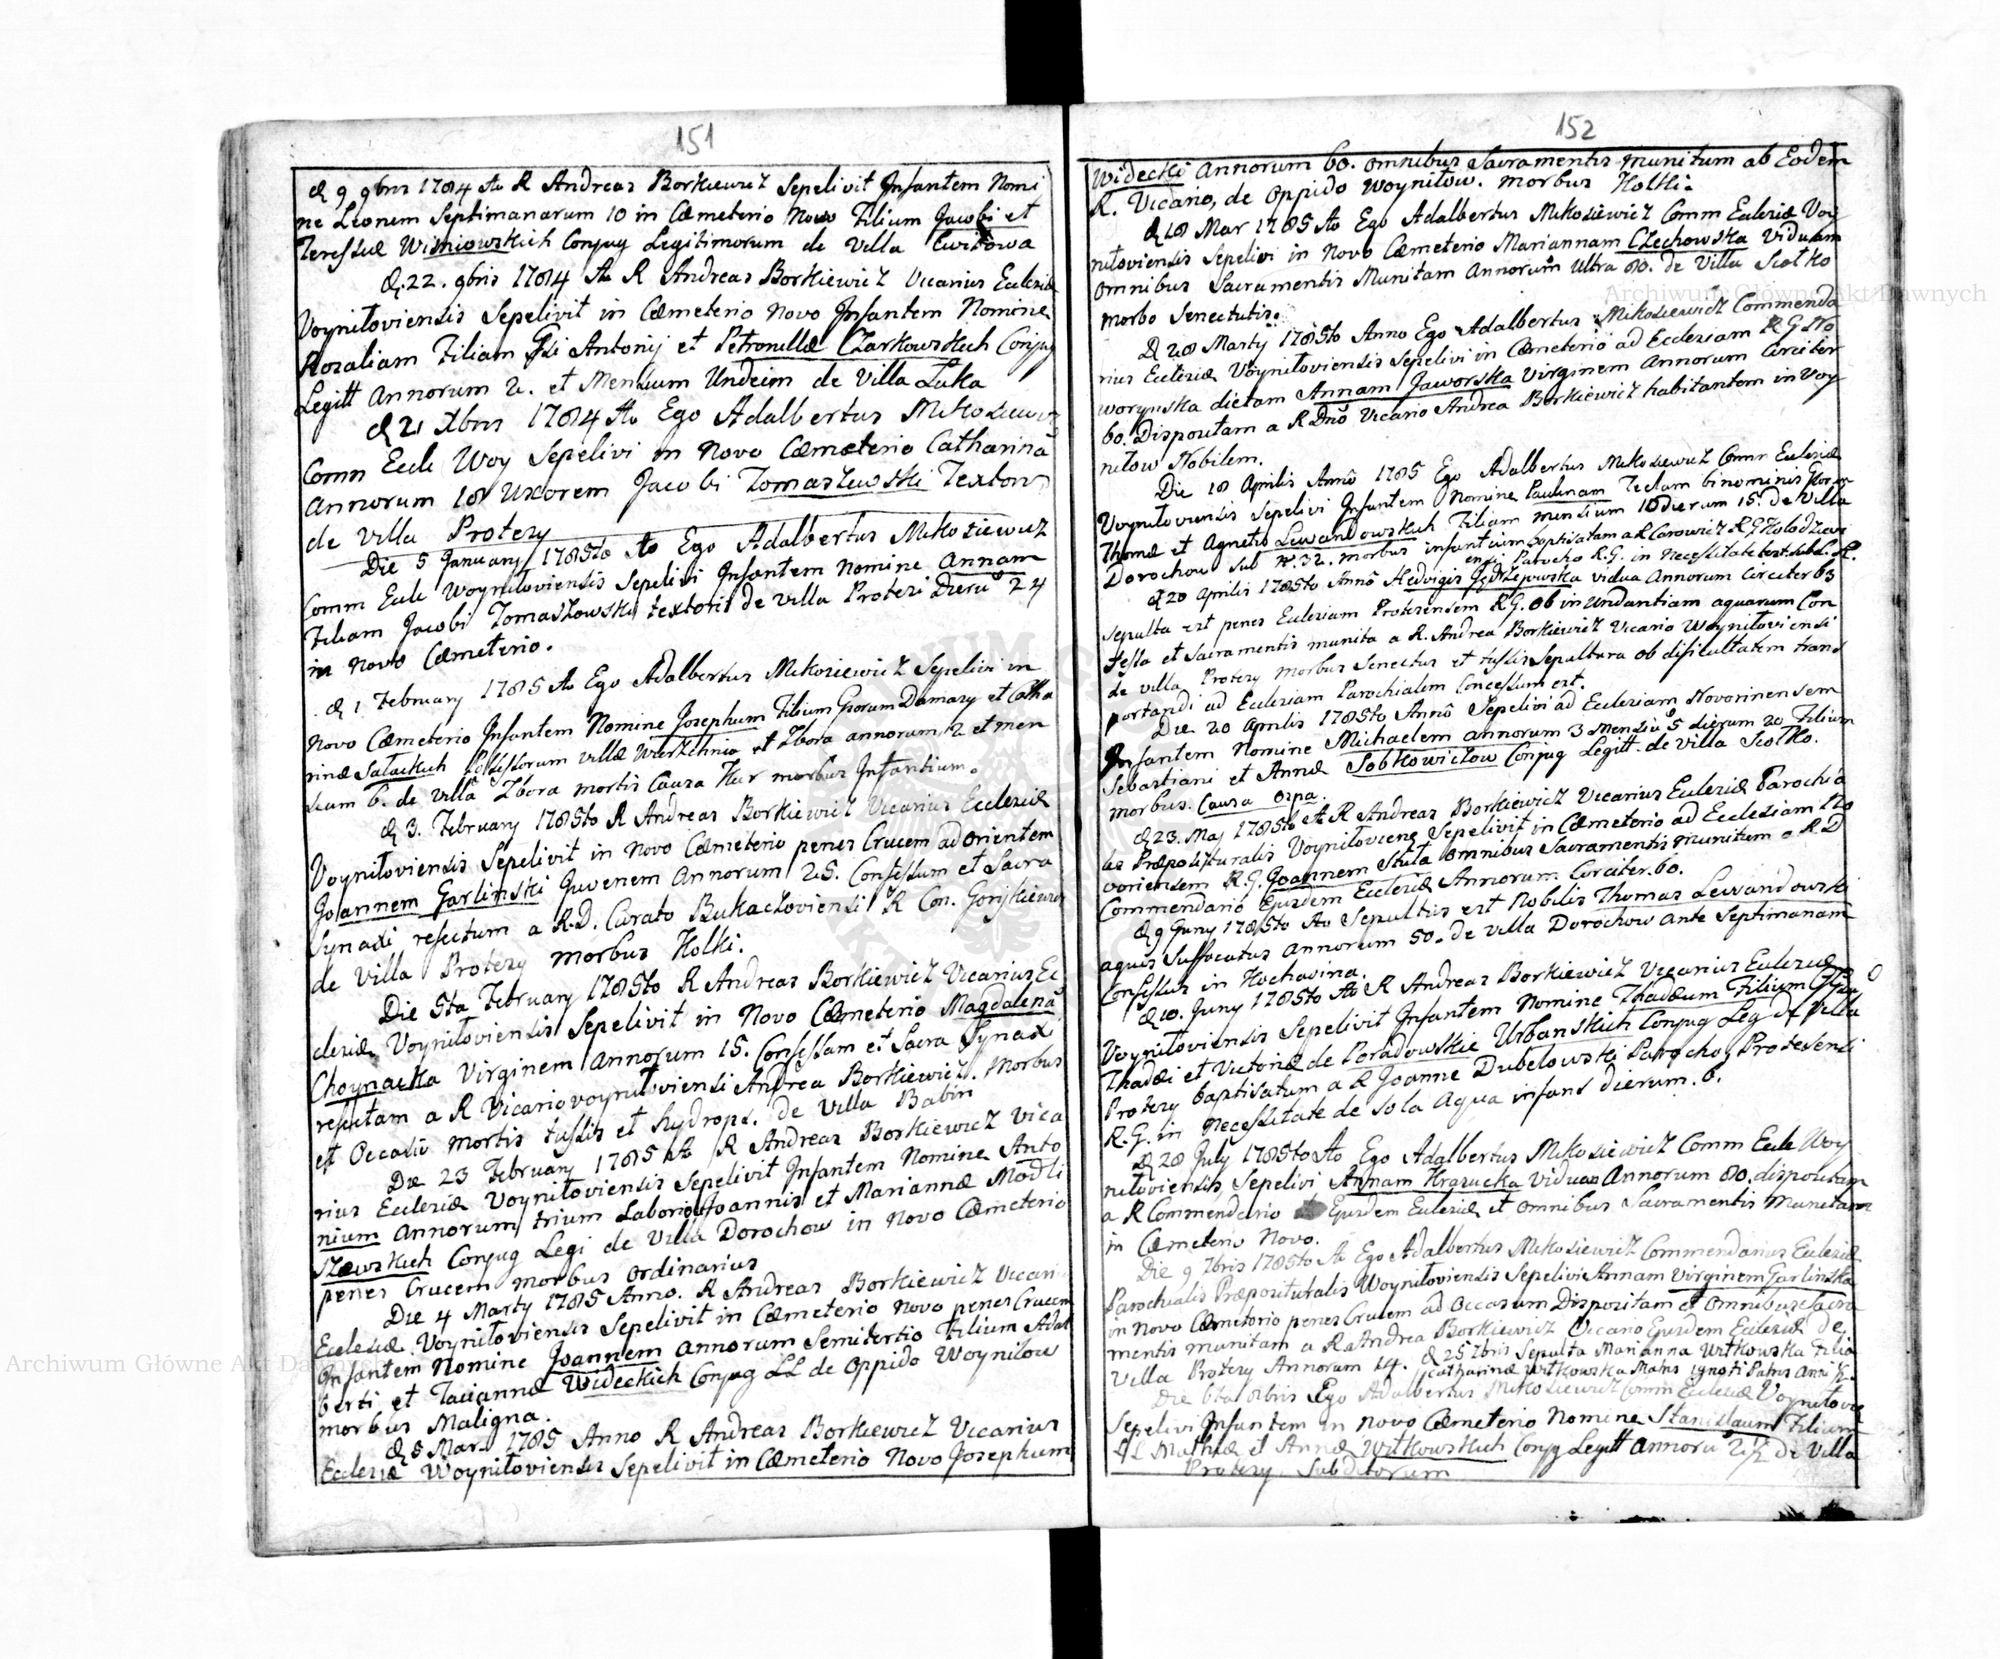 151
D 9 9bris 1784 Ao R Andreas Borkiewicz Sepelivit Infantem Nomi
ne Leonem Septimanarum 10 in Cæmeterio Novo Filium Jacobi et
Teressiæ Wisniowskich Conjug Legitimorum de Villa Cwitowa
D. 22. 9bris 1784 Ao R Andreas Borkiewicz Vicarius Ecclesiæ
Voyniloviensis Sepelivit in Cæmeterio Novo Infantem Nomine
Rozaliam Filiam Gsi Antonij et Petronellæ Czarkowskich Conjug
Legitt Annorum 2. et Mensium Undecim de Villa Łuka
D 21 Xbris 1784 Ao Ego Adalbertus Mikosiewicz
Comn Eccle Woy Sepelivi in Novo Cæmeterio Catharinã
Annorum 18 Uxorem Jacobi Tomaszewski Textoris
de Villa Protezy
Die 5 January 1785to Ao Ego Adalbertus Mikosiewicz
Comm Eccle Woyniloviensis Sepelivi Infantem Nomine Annam
Filiam Jacobi Tomaszowski textoris de Villa Protezi Dierũ 24
in Novo Cæmeterio.
D 1 February 1785 Ao Ego Adalbertus Mikosiewicz Sepelivi in
Novo Cæmeterio Infantem Nomine Josephum Filium Gsorum Damazy et Catha
rinæ Sałackich Possessorum villæ Wierzchnia et Zbora annorum 2 et men
sium 6. de villa Zbora mortis Causa Kur morbus Infantium.
D 3. February 1785to R Andreas Borkiewicz Vicarius Ecclesiæ
Voyniloviensis Sepelivit in Novo Cæmeterio penes Crucem ad orientem
Joannem Garlinski Juvenem Annorum 25. Confessum et Sacra
Synaxi refectum a R.D. Curato Bukaczoviensi R Con.
de Villa Protezy morbus Kolki.
Die 5ta February 1785to R Andreas Borkiewicz Vicarius Ec
clesiæ Voyniloviensis Sepelivit in Novo Cæmeterio Magdalenã
Choynacka Virginem Annorum 15. Confessam et Sacra Synaxi
refectam a R Vicario voyniloviensi Andrea Borkiewicz. Morbus
et Occasio mortis tussis et hydrops. de Villa Babin
Die 23 February 1785 Ao R Andreas Borkiewicz Vica
rius Ecclesiæ Voyniloviensis Sepelivit Infantem Nomine Anto
nium Annorum trium Laboriosi Joannis et Mariannæ Modli
szewskich Conjug Legi de Villa Dorochow in Novo Cæmeterio
penes Crucem morbus ordinarius
Die 4 Marty 1785 Anno. R Andreas Borkiewicz Vicari
Ecclesiæ Voyniloviensis Sepelivit in Cæmeterio Novo penes Crucem
Infantem Nomine Joannem Annorum Semitertio Filium Adal
berti et Tacianæ Wideckich Conjug LL de Oppido Woynilow
morbus Maligna.
D 8 Mar. 1785 Anno R Andreas Borkiewicz Vicarius
Ecclesiæ Woyniloviensis Sepelivit in Cæmeterio Novo Josephum
152
Widecki Annorum 60. omnibus Sacramentis munitum ab Eodem
R. Vicario, de Oppido Woynilow. morbus Kolki.
D 18 Mar 1785 Ao Ego Adalbertus Mikosiewicz Comm Eclesiæ Voy
niloviensis Sepelivi in Novo Cæmeterio Mariannam Czechowska Viduam
omnibus Sacramentis Munitam Annorum Ultra 80. de Villa Siołko
morbo Senectutis.
D 28 Marty 1785to Anno Ego Adalbertus Mikosiewicz Commenda
rius Ecclesiæ Voyniloviensis Sepelivi in Cæmeterio ad Ecclesiam R G No
worynska dictam Annam Jaworska Virginem Annorum Circiter
60. Dispositam a R Dno Vicario Andrea Borkiewicz habitantem in Voy
nilow Nobilem.
Die 18 Aprilis Annô 1785 Ego Adalbertus Mikosiewicz Comn Ecclesiæ
Voyniloviensis Sepelivi Infantem Nomine Paulinam Teclam binominis
Thomæ et Agnetis Lewandowskich Filiam mensium 10 dierum 15. de Villa
Dorochow sub N. 32. morbus infantium baptisatam a R Carowicz R.G.
Parocho R.G. in necessitate
D 20 Aprilis 1785to Annô Hedvigis Jędrzejowska vidua Annorum Circiter 63
sepulta est penes Ecclesiam Protesensem R.G. ob inundantiam aquarum Con
fessa et Sacramentis munita a R. Andrea Borkiewicz Vicario Woyniloviensi
de villa Protezy morbus Senectus et tussis Sepultura ob dificultatem trans
portandi ad Ecclesiam Parochialem Concessum est.
Die 20 Aprilis 1785to Annô Sepelivi ad Ecclesiam Novorinensem
Infantem Nomine Michaelem annorum 3 Mensiũ 5 dierum 20 Filium
Sebastiani et Annæ Sobkowiczow Conjug Legitt. de Villa Siołko.
morbus. Causa Ospa.
D 23. Maj 1785to Ao R Andreas Borkiewicz Vicarius Ecclesiæ Parochia
lis Præposituralis Voynilovicens Sepelivit in Cæmeterio ad Ecclesiam
voriensem R.G. Joannem Stuła omnibus Sacramentis munitum a R.D
Commendario Ejusdem Ecclesiæ Annorum Circiter 60.
D 9 Juny 1785to Ao Sepultus est Nobilis Thomas Lewandowski
aquis Suffocatus Annorum 50. de villa Dorochow ante Septimanam
Confessus in Kochavina.
D 10. Juny 1785to Ao R Andreas Borkiewicz Vicarius Ecclesiæ
Voyniloviensis Sepelivit Infantem Nomine Thadæum Filium
Thadæi et Victoriæ de Poradowskie Urbanskich Conjug Leg De Villa
Protezy baptisatum a R Joanne Dubelowski Parocho Protesensi
R.G. in necessitate de sola Aqua infans dierum. 6.
D 28 July 1785to Ao Ego Adalbertus Mikosiewicz Comm Eccle Woy
niloviensis Sepelivi Annam Krasucka viduam Annorum 80. dispositam
a R Commendario Ejusdem Ecclesiæ et omnibus Sacramentis Munitam
in Cæmeterio Novo.
Die 9 7bris 1785to Ao Ego Adalbertus Mikosiewicz Commendarius Ecclesiæ
Parochialis Præposituralis Woyniloviensis Sepelivi Annam Virginem Garlinska
in Novo Cæmeterio penes Crucem ad Occasum Dispositam et Omnibus Sacra
mentis munitam a R Andrea Borkiewicz Vicario Ejusdem Ecclesiæ de
Villa Protezy Annorum 14. D 25 7bris Sepulta Marianna Witkowska Filia
Catharinæ Witkowska Matris ignoti Patris
Die 6ta 8bris Ego Adalbertus Mikosiewicz Comm Ecclesiæ Voynilovie
Sepelivi Infantem in Novo Cæmeterio Nomine Stanislaum Filium
LL Mathiæ et Annæ Witkowskich Conjg Legitt Annorũ 2 1/2 de Villa
Protezy Subditorum
Archiwum Główne Akt Dawnych
Archiwum Główne Akt Dawnych